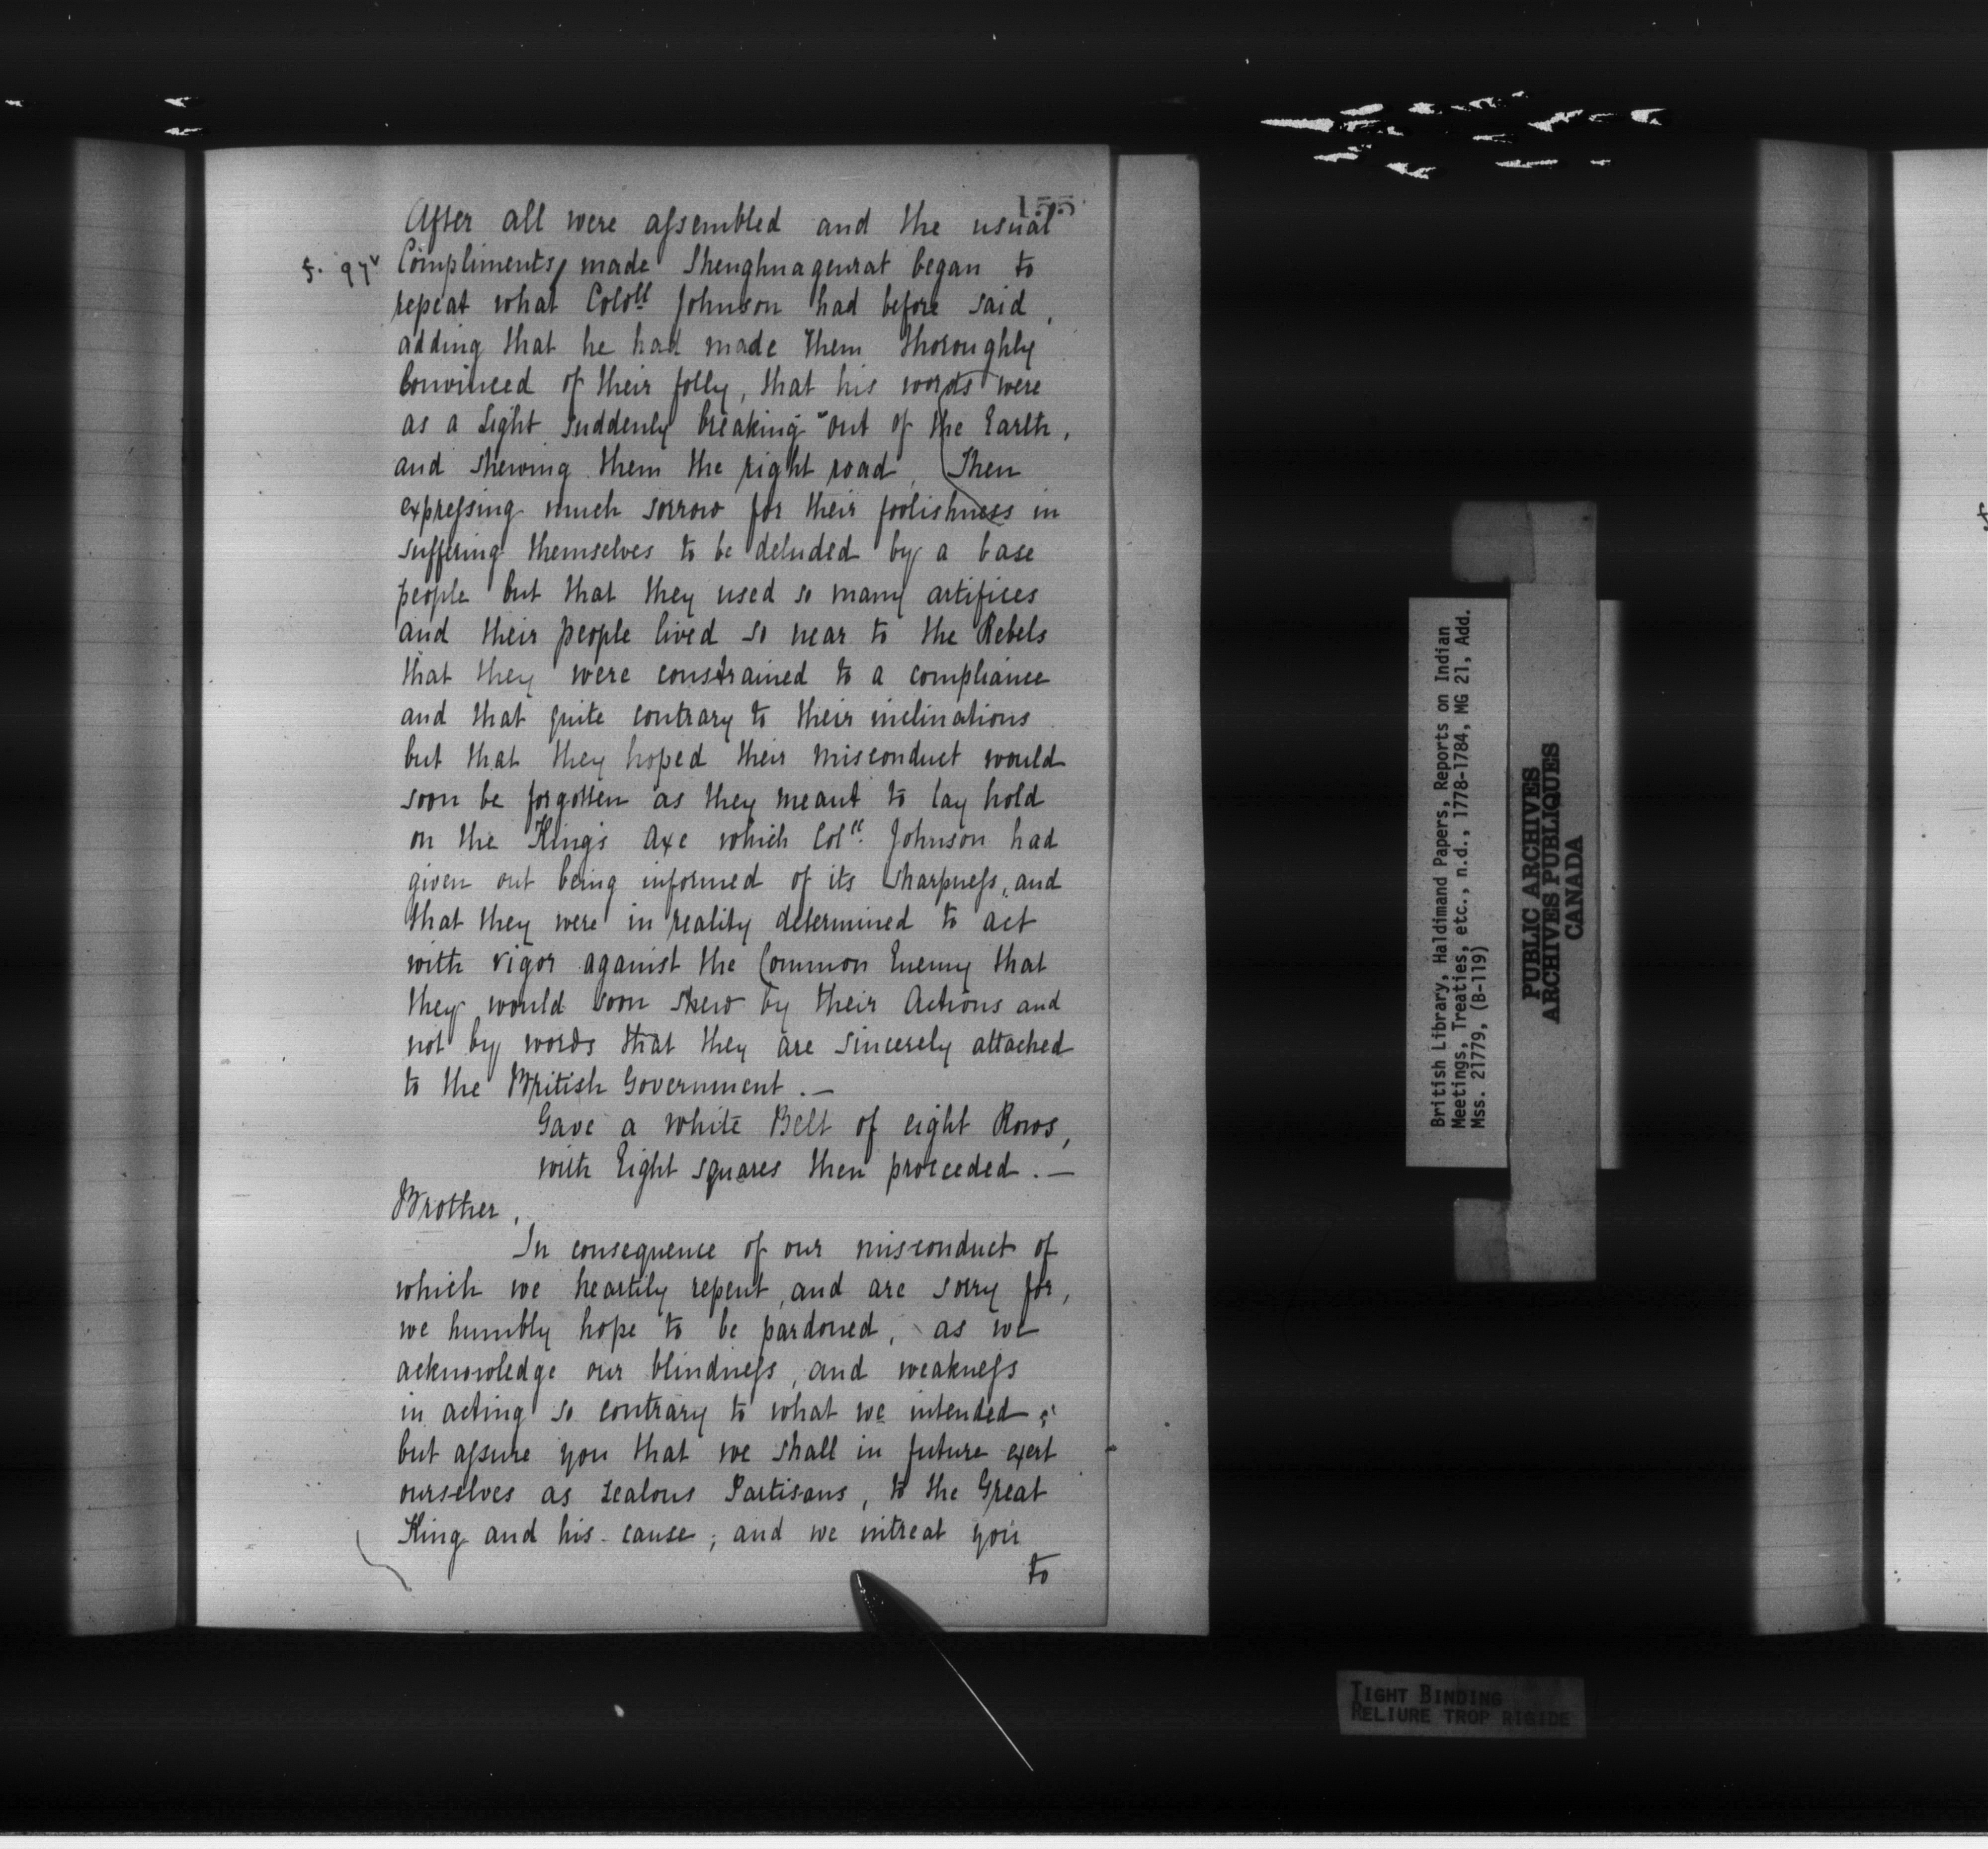 155
After all were assembled and the usual
f. 97v Compliments, made Shenghnagenrat began to
repeat what Colo.ll Johnson had before said,
adding that he had made them thoroughly
Convinced of their folly, that his words were
as a Light suddenly breaking out of the Earth,
and shewing them the right road, Then
expressing much sorrow for their foolishness in
suffering themselves to be deluded by a base
people but that they used so many artifices
and their people lived so near to the Rebels
that they were constrained to a compliance
and that quite contrary to their inclinations
but that they hoped their misconduct would
soon be forgotten as they meant to lay hold
on the King's Axe which Col.ll Johnson had
given out being informed of its Sharpness, and
that they were in reality determined to act
with vigor against the Common Enemy that
they would soon shew by their Actions and
not by words that they are sincerely attached
to the British Government. —
Gave a white Belt of eight Rows,
with Eight squares then proceeded. —
Brother,
In consequence of our misconduct of
which we heartily repent, and are sorry for,
we humbly hope to be pardoned, as we
acknowledge our blindness, and weakness
in acting so contrary to what we intended;
but assure you that we shall in future exert
ourselves as zealous Partisans, to the Great
King and his cause; and we intreat you
to
British Library, Haldimand Papers, Reports on Indian
Meetings, Treaties, etc., n.d., 1778-1784, MG 21, Add.
Mss. 21779, (B-119)
PUBLIC ARCHIVES
ARCHIVES PUBLIQUES
CANADA
TIGHT BINDING
RELIURE TROP RIGIDE